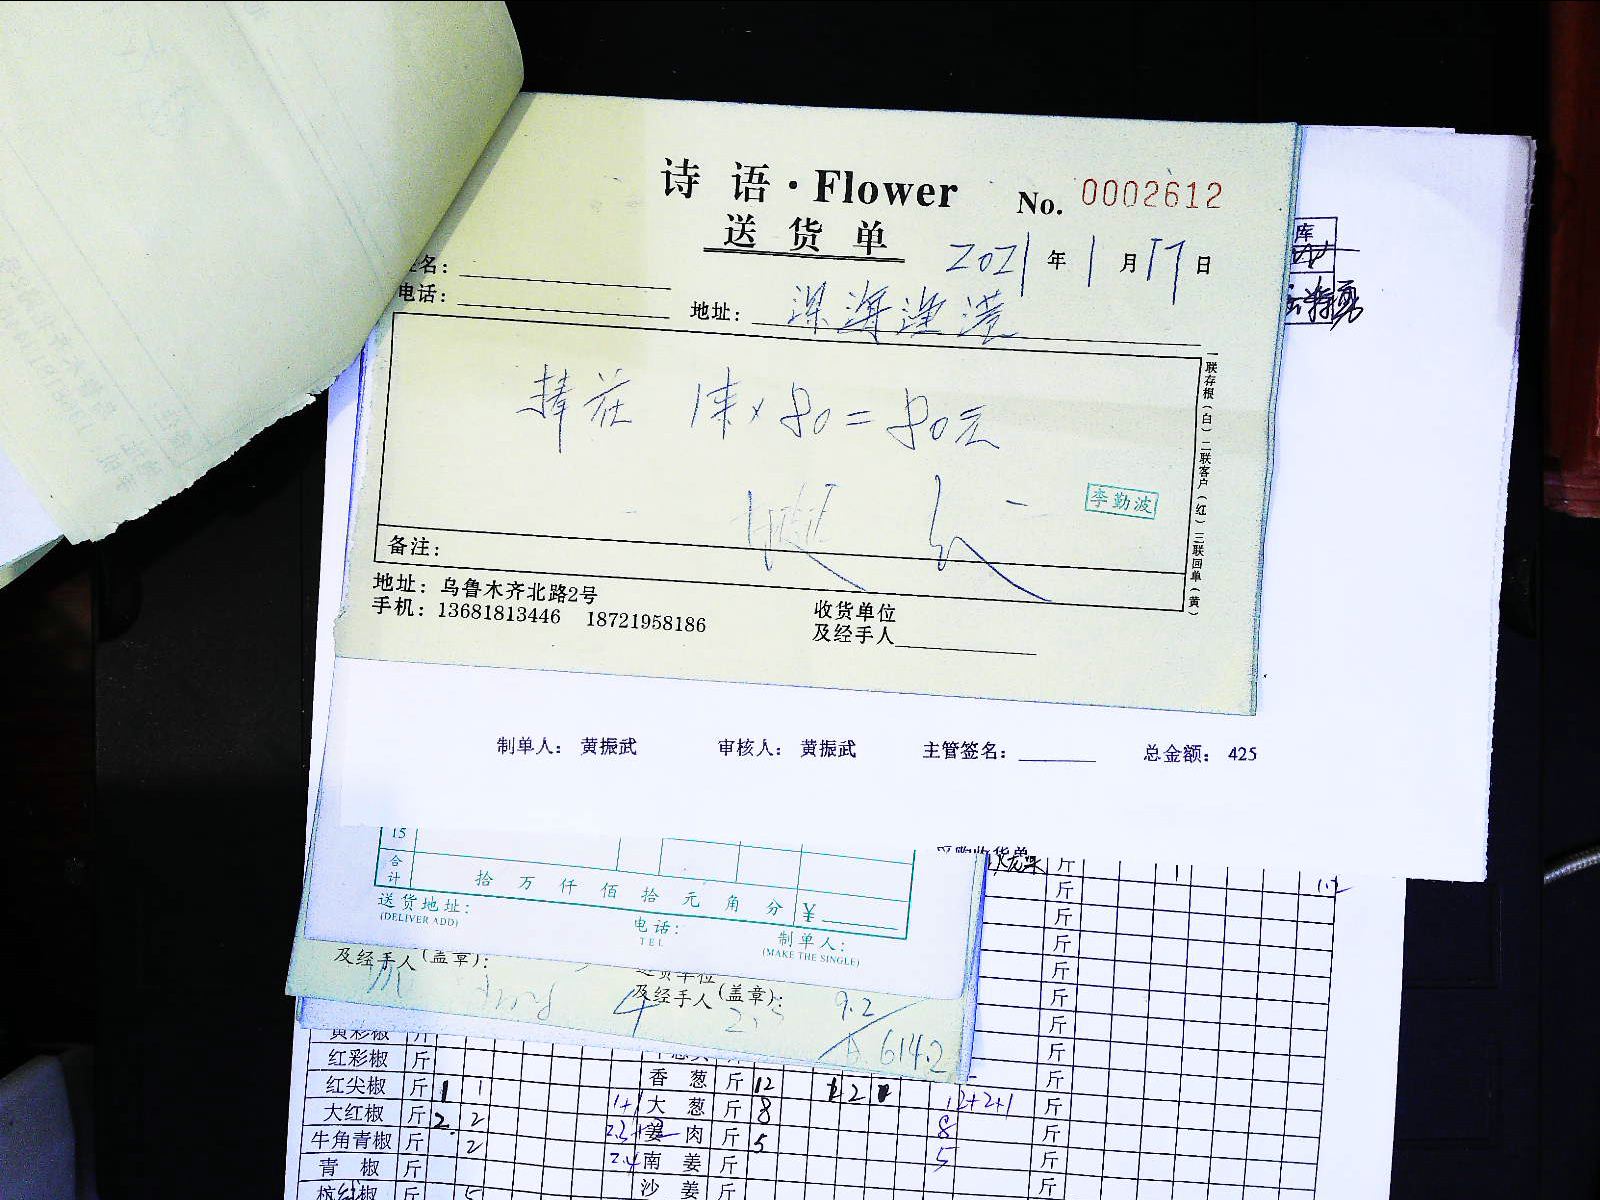 诗语·Flower
No. 0002612
送货单
2021年1月17日
名：
电话：
地址：深海渔港
捧花 1束×80=80元
李勤波
备注：
地址：乌鲁木齐北路2号
手机：13681813446 18721958186
收货单位
及经手人
一联存根（白）二联客户（红）三联回单（黄）
库
制单人： 黄振武 审核人： 黄振武 主管签名： 总金额： 425
15
合计 拾 万 仟 佰 拾 元 角 分 ¥
送货地址：
(DELIVER ADD)
电话：
TEL
制单人：
(MAKE THE SINGLE)
及经手人（盖章）：
及经手人（盖章）：
9.2
614.2
采购收货单
斤 1
斤
斤
斤
斤
斤
斤
斤
黄彩椒 斤
红彩椒 斤 斤
红尖椒 斤 1 1 香葱 斤 12 12+2+1 斤
大红椒 斤 2 2 1+1 大葱 斤 8 8 斤
牛角青椒 斤 2 姜肉 斤 5 5 斤
青椒 斤 2.4 南姜 斤 斤
杭红椒 斤 5 沙姜 斤